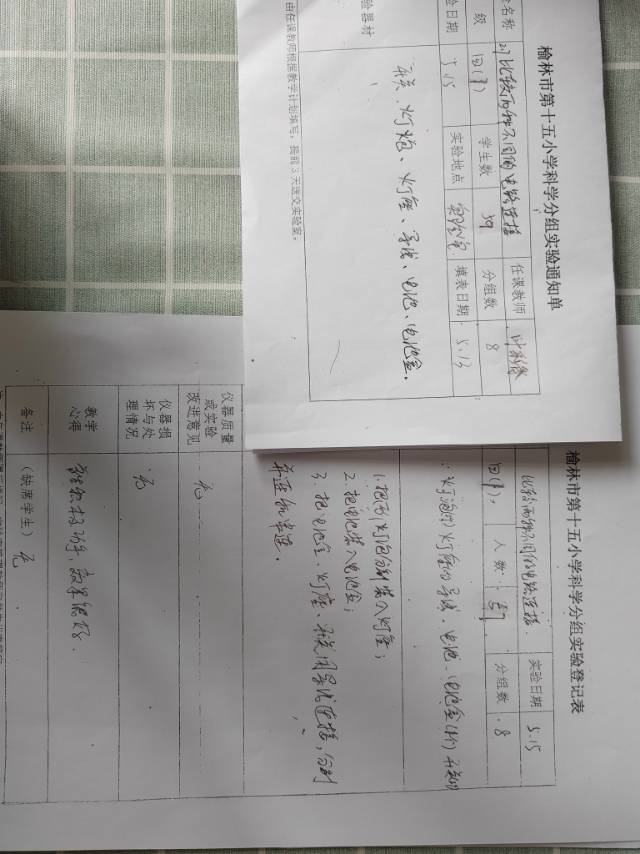 榆林市第十五小学科学分组实验通知单
名称 21 比较两种不同的电路连接 任课教师
级 四(9) 学生数 39 分组数 8
验日期 5.15 实验地点 实验室 填表日期 5.13
验器材 开关、灯炮、灯座、导线、电池、电池盒。
由任课教师根据教学计划填写，提前3天送交实验室。
榆林市第十五小学科学分组实验登记表
比较两种不同的电路连接 实验日期 5.15
四(9) 人数 分组数 8
1.把两灯泡分别装入灯座；
2.把电池装入电池盒；
3.把电池盒、灯座、开关用导线连接，分别
并连和串连。
仪器质量
或实验
改进意见
无
仪器损
坏与处
理情况
无
教学
心得
效果很好。
备注
（缺席学生）无